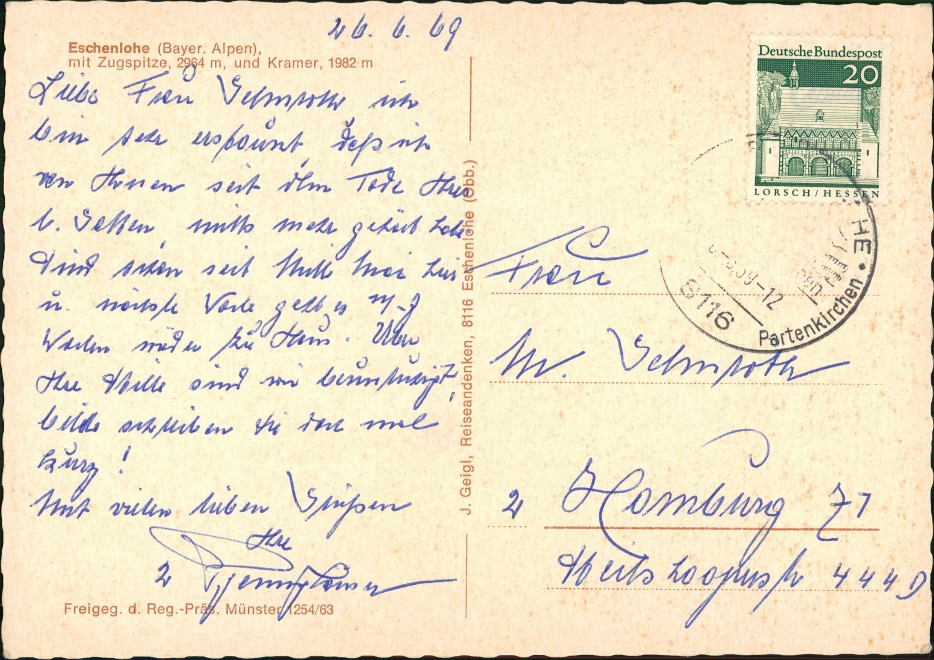 26.6.69
Eschenlohe (Bayer. Alpen),
mit Zugspitze, 2964 m, und Kramer, 1982 m
Liebe Frau Schmroth ich
bin sehr erstaunt, daß ich
von Ihnen seit dem Tode Ihres
l. Gatten, nichts mehr gehört habe
Sind schon seit Mitte Mai hier
u. nächste Woche geht es
wieder zu Haus. Über
Ihre Stille sind wir beunruhigt,
bitte schreiben Sie doch mal
kurz!
Mit vielen lieben Grüßen
Ihre
Freigeg. d. Reg.-Präs. Münster 1254/63
J. Geigl, Reiseandenken, 8116 Eschenlohe (Obb.)
Deutsche Bundespost
20
LORSCH/HESSEN
HE
69-12
8116
Partenkirchen
Frau
M. Schmroth
2 Hamburg 71
444 D